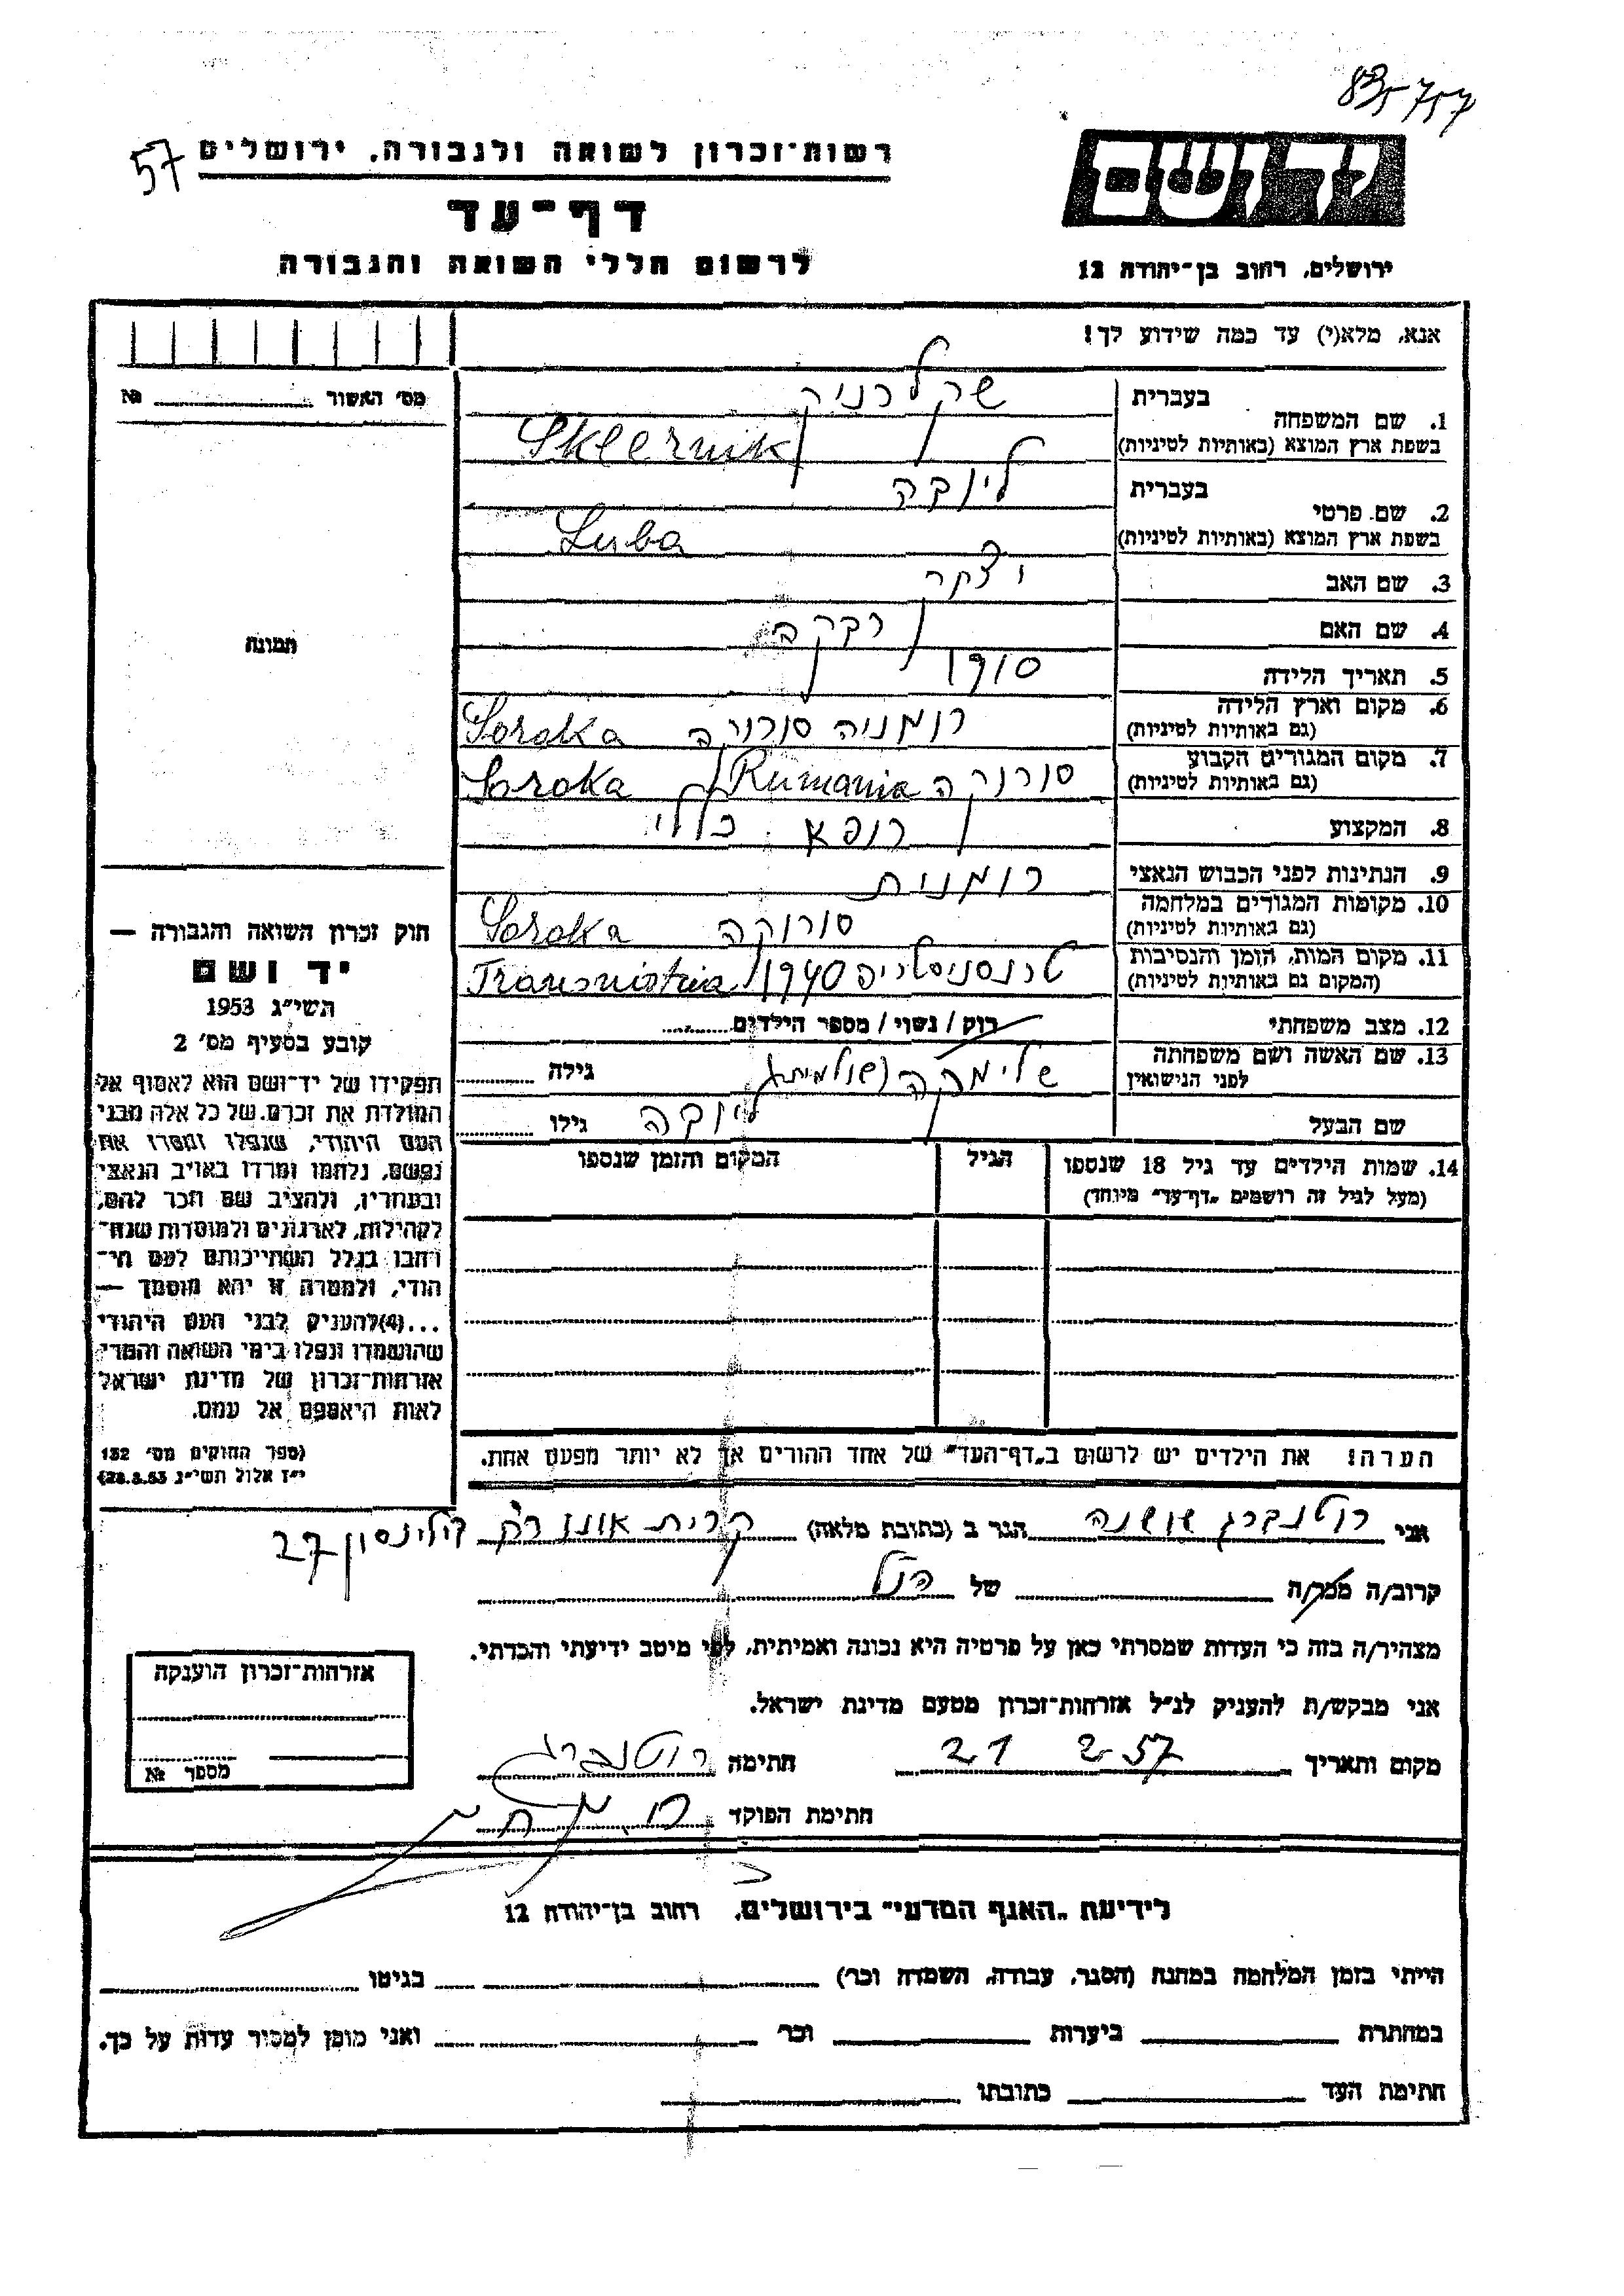 835757
57
רשות־זכרון לשואה ולגבורה, ירושלים
יד ושם
דף־עד
לרשום חללי השואה והגבורה
ירושלים, רחוב בן־יהודה 12
אנא, מלא(י) עד כמה שידוע לך!
מס׳ האשור № 
1. שם המשפחה בעברית שקלרניק
בשפת ארץ המוצא (באותיות לטיניות) Sklernik
2. שם פרטי בעברית ליובה
בשפת ארץ המוצא (באותיות לטיניות) Luba
3. שם האב יצחק
4. שם האם רבקה
5. תאריך הלידה 1910
6. מקום וארץ הלידה (גם באותיות לטיניות) רומניה סורוקה Soroka
7. מקום המגורים הקבוע (גם באותיות לטיניות) סורוקה Rumania Soroka
8. המקצוע רופא כללי
9. הנתינות לפני הכבוש הנאצי רומנית
10. מקומות המגורים במלחמה (גם באותיות לטיניות) סורוקה Soroka
11. מקום המות, הזמן והנסיבות (המקום גם באותיות לטיניות) טרנסניסטריה 1940 Transnistria
12. מצב משפחתי רוק / נשוי / מספר הילדים
13. שם האשה ושם משפחתה לפני הנישואין גילה
שם הבעל ליובה גילו
14. שמות הילדים עד גיל 18 שנספו הגיל המקום והזמן שנספו
(מעל לגיל זה רושמים „דף־עד״ מיוחד)
הערה! את הילדים יש לרשום ב„דף־העד״ של אחד ההורים אך לא יותר מפעם אחת.
תמונה
חוק זכרון השואה והגבורה —
יד ושם
תשי״ג 1953
קובע בסעיף מס׳ 2
תפקידו של יד־ושם הוא לאסוף אל
המולדת את זכרם של כל אלה מבני
העם היהודי, שנפלו ומסרו את
נפשם, נלחמו ומרדו באויב הנאצי
ובעוזריו, ולהציב שם וזכר להם,
לקהילות, לארגונים ולמוסדות שנח־
רבו בגלל השתייכותם לעם הי־
הודי, ולמטרה זו יהא מוסמך —
...(4)להעניק לבני העם היהודי
שהושמדו ונפלו בימי השואה והמרי
אזרחות־זכרון של מדינת ישראל
לאות היאספם אל עמם.
(ספר החוקים מס׳ 132
י״ז אלול תשי״ג 28.8.53)
אני רוטנברג שושנה הגר ב (כתובת מלאה) קרית אונו רח׳ דילינסון 27
קרוב/ה מכר/ה של הנ״ל
מצהיר/ה בזה כי העדות שמסרתי כאן על פרטיה היא נכונה ואמיתית, לפי מיטב ידיעתי והכרתי.
אני מבקש/ת להעניק לנ״ל אזרחות־זכרון מטעם מדינת ישראל.
מקום ותאריך 21 2 57 חתימה רוטנברג
חתימת הפוקד
אזרחות־זכרון הוענקה
מספר №
לידיעת „האגף המדעי״ בירושלים, רחוב בן־יהודה 12
הייתי בזמן המלחמה במחנה (הסגר, עבודה, השמדה וכו׳) בגיטו
במחתרת ביערות וכו׳ ואני מוכן למסור עדות על כך.
חתימת העד כתובתו